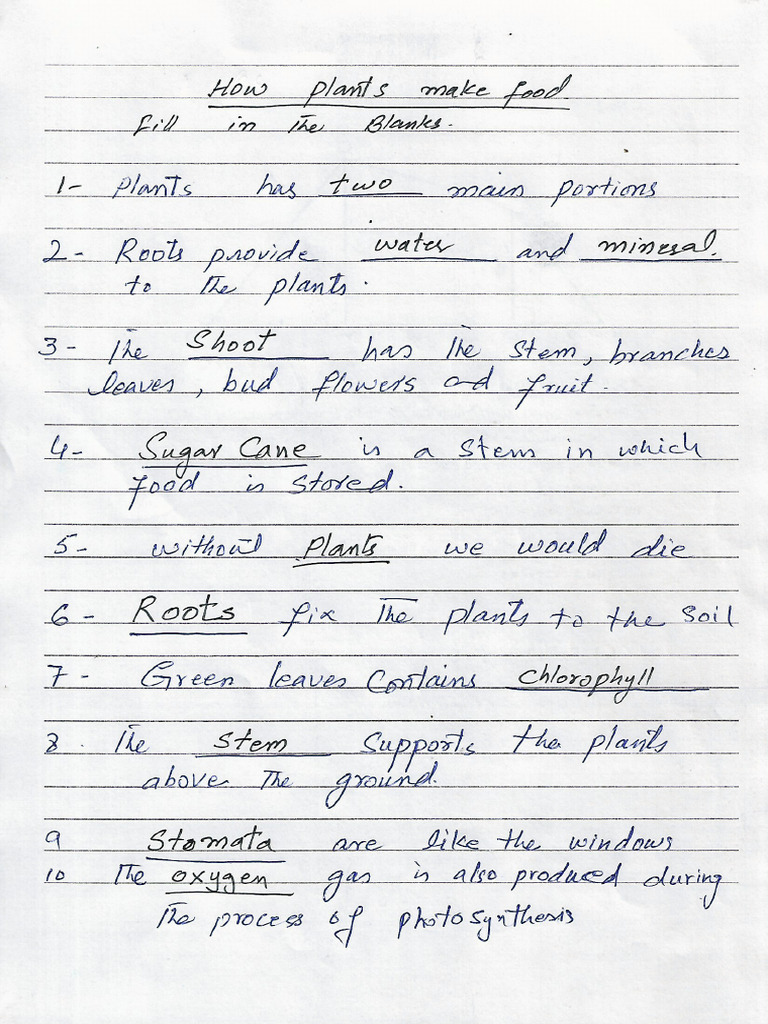 How plants make food
fill in the Blanks.
1- Plants has two main portions
2- Roots provide water and mineral.
to the plants.
3- The Shoot has the stem, branches
leaves, bud flowers and fruit.
4- Sugar Cane is a stem in which
food is stored.
5- without plants we would die
6- Roots fix the plants to the soil
7- Green leaves contains chlorophyll
8. The stem supports the plants
above the ground.
9 Stomata are like the windows
10 The oxygen gas is also produced during
The process of photosynthesis